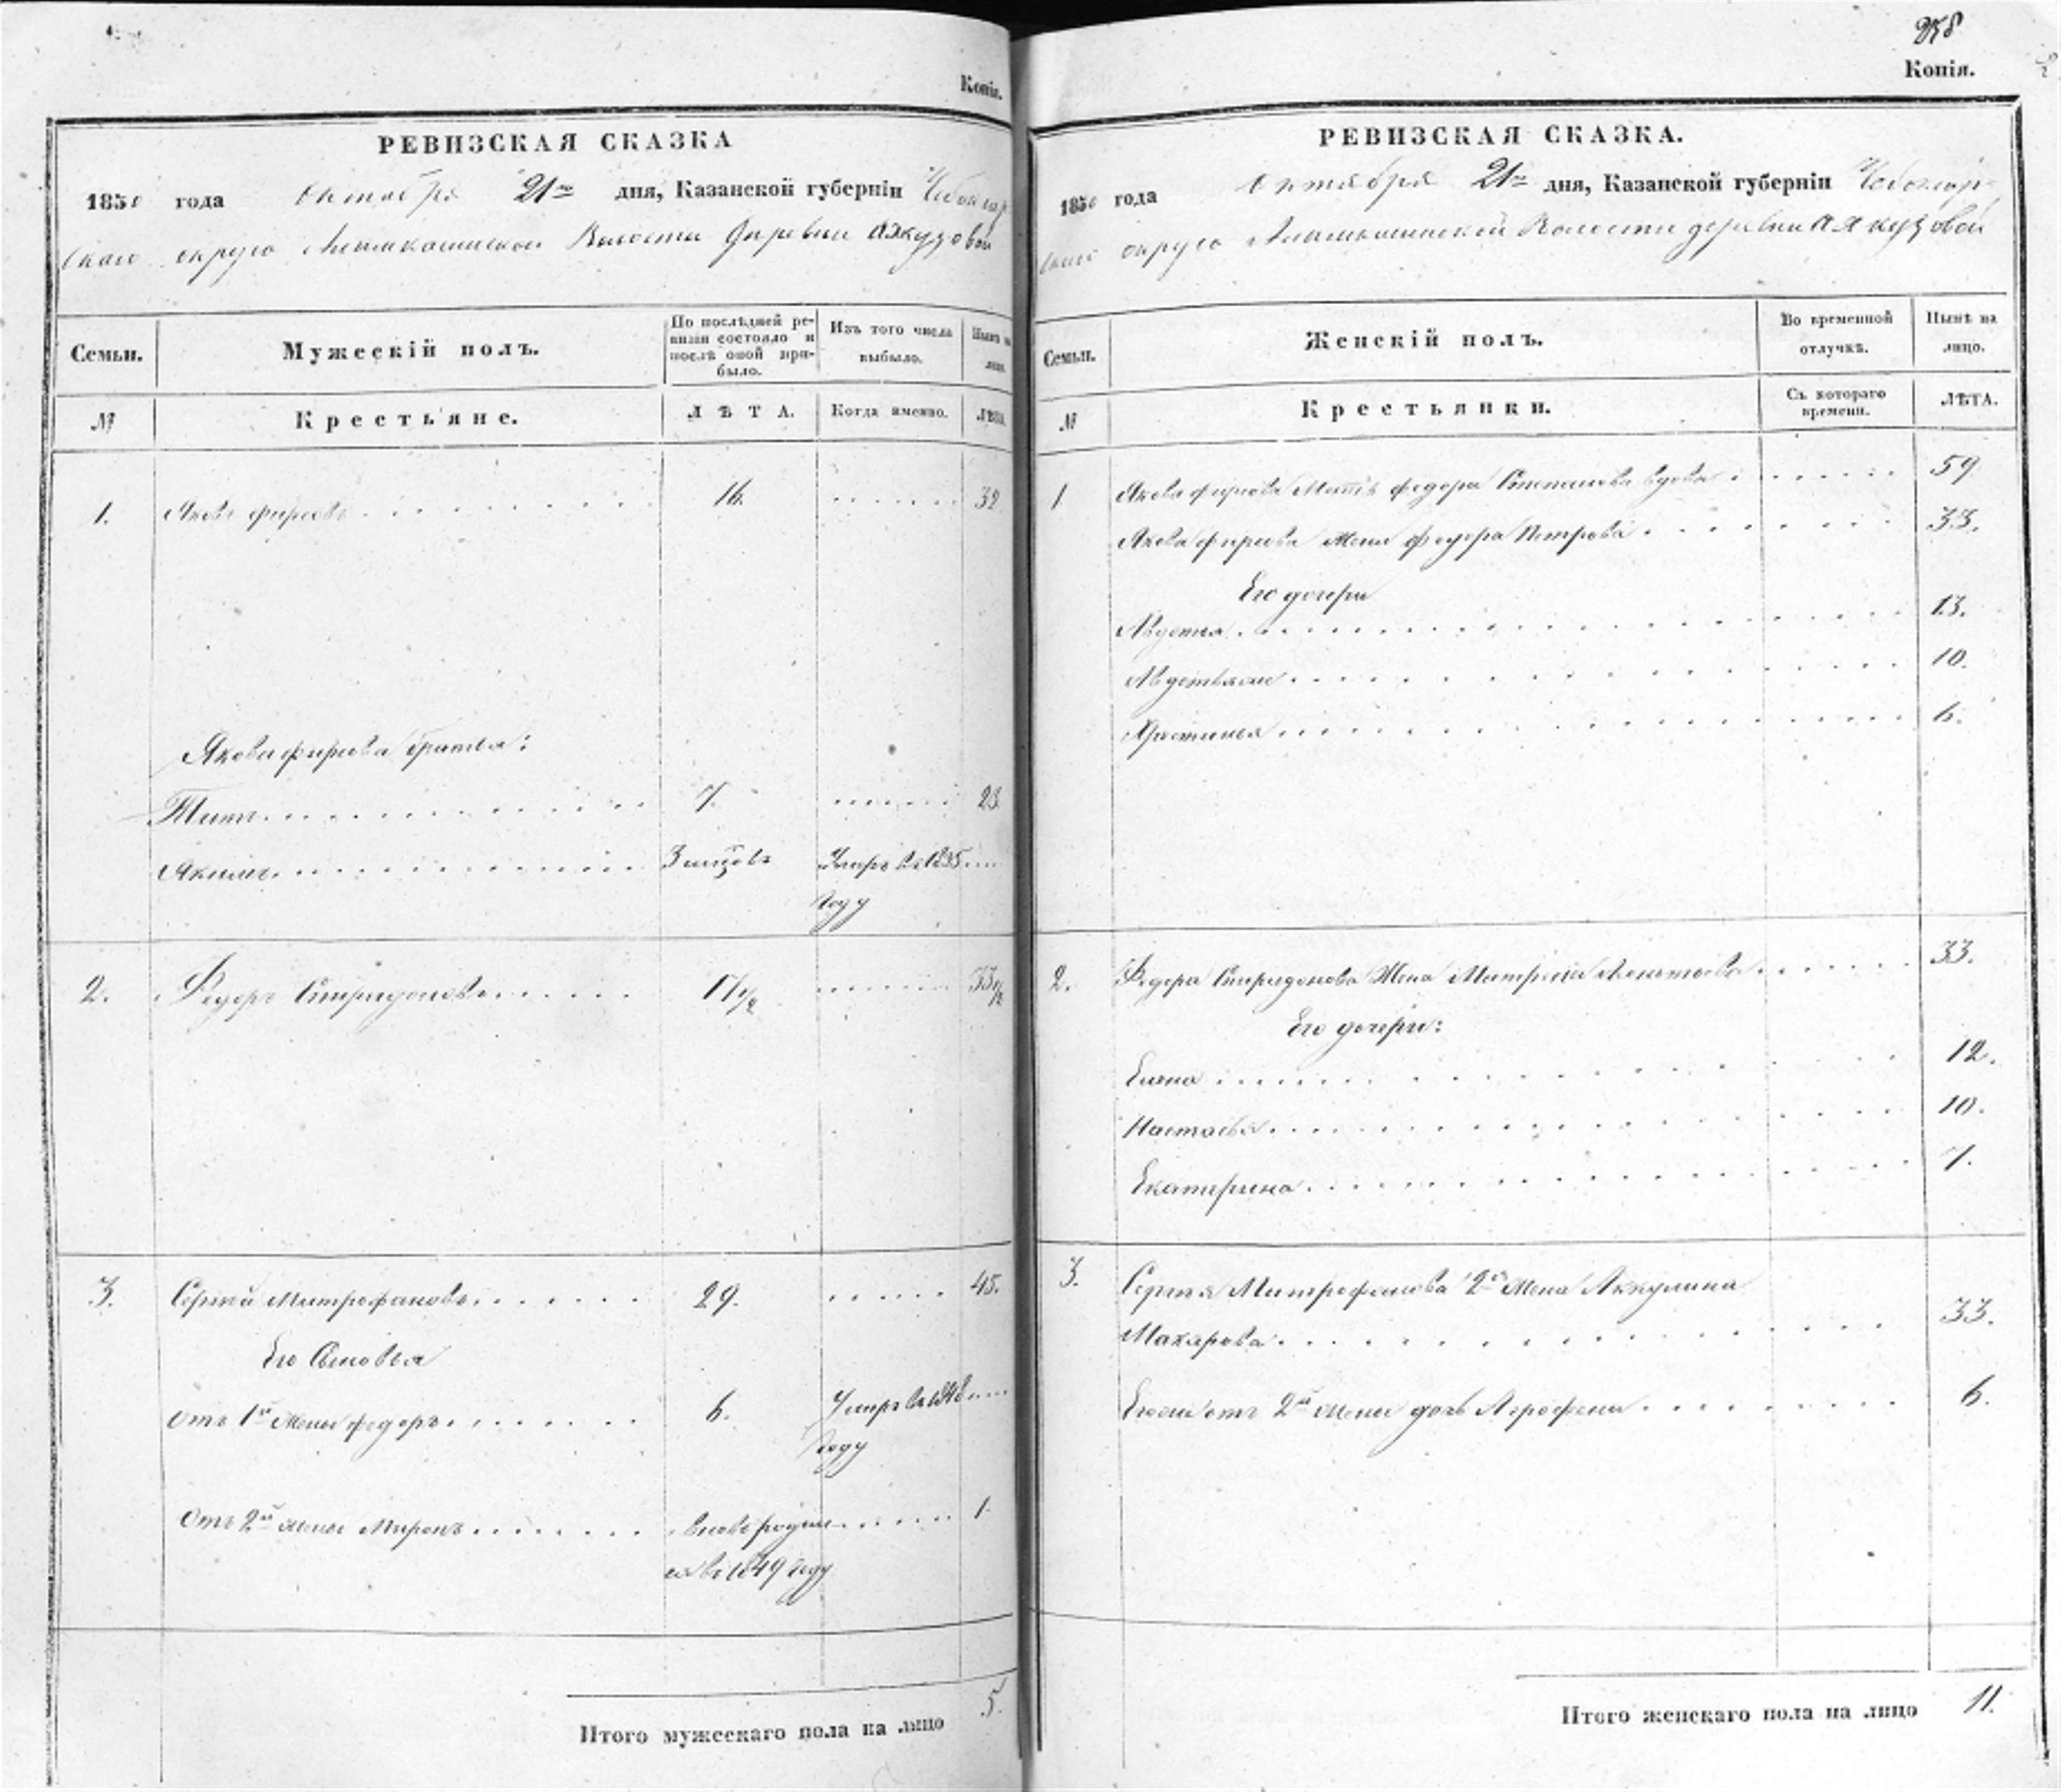 Копія.
РЕВИЗСКАЯ СКАЗКА
1850 года Октября 21го дня, Казанской губерніи Чебоксар
скаго округа Волости Деревни Аякузовой
Семьи.
Мужескій полъ.
По послѣдней ре-
визіи состояло и
послѣ оной при-
было.
Изъ того числа
выбыло.
Нынѣ на
лицо.
№
Крестьяне.
ЛѢТА.
Когда именно.
ЛѢТА.
1. Яковъ Фирсовъ 16. 32
Якова Фирсова братья:
Титъ 7. 23.
Акимъ 3 мцовъ Умеръ въ 1835
году
2. Федоръ Спиридоновъ 17 1/2 33 1/2
3. Сергѣй Митрофановъ 29. 45.
Его Сыновья
Отъ 1й Жены Федоръ 6. Умеръ въ 1848
году
Отъ 2й жены Миронъ вновь родил 1
ся въ 1849 году
Итого мужескаго пола на лицо 5.
258
Копія.
РЕВИЗСКАЯ СКАЗКА.
1850 года Октября 21го дня, Казанской губерніи Чебоксар-
скаго округа Волости деревни Аякузовой
Семьи.
Женскій полъ.
Во временной
отлучкѣ.
Нынѣ на
лицо.
№
Крестьянки.
Съ котораго
времени.
ЛѢТА.
1 Якова Фирсова Мать Федора Степанова вдова 59
Якова Фирсова Жена Федора Петрова 33.
Его дочери
Авдотья 13.
10.
Христинья 6.
2. Федора Спиридонова Жена Матрена Леонтьева 33.
Его дочери:
Елена 12.
Настасья 10.
Екатерина 7.
3. Сергѣя Митрофанова 2я Жена Аккулина
Макарова 33.
Его же отъ 2й жены дочь Агрофена 6.
Итого женскаго пола на лицо 11.